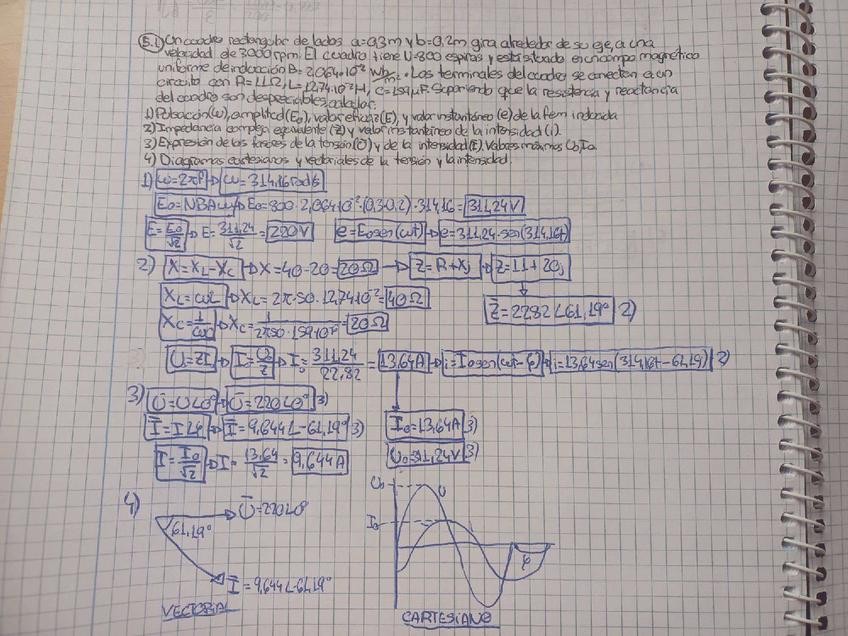 5.1) Un cuadro rectangular de lados a=0,3m y b=0,2m gira alrededor de su eje, a una
velocidad de 3000 rpm. El cuadro tiene U=800 espiras y está situado en un campo magnético
uniforme de inducción B=2,064·10⁻² Wb/m². Los terminales del cuadro se conectan a un
circuito con R=11Ω, L=12,74·10⁻²H, C=159μF. Suponiendo que la resistencia y reactancia
del cuadro son despreciables, calcular:
1) Pulsación(ω), amplitud(E₀), valor eficaz(E), y valor instantáneo (e) de la fem inducida
2) Impedancia compleja equivalente (Z) y valor instantáneo de la intensidad (i).
3) Expresión de los fasores de la tensión(U) y de la intensidad(I). Valores máximos U₀I₀
4) Diagramas cartesianos y vectoriales de la tensión y la intensidad.
1) ω=2πf → ω=314,16rad/s
E₀=NBAω → E₀=800·2,064·10⁻²·(0,3·0,2)·314,16=311,24V
E=E₀/√2 → E=311,24/√2=220V e=E₀sen(ωt) → e=311,24·sen(314,16t)
2) X=XL-XC → X=40-20=20Ω → Z=R+Xj → Z=11+20j
XL=ωL → XL=2π·50·12,74·10⁻²=40Ω Z̄=22,82∠61,19° 2)
XC=1/ωC → XC=1/2π50·159·10⁻⁶=20Ω
U=ZI → I=U/Z → I₀=311,24/22,82=13,64A → i=I₀sen(ωt-φ) → i=13,64sen(314,16t-61,19) 2)
3) Ū=U∠0° → Ū=220∠0° 3)
Ī=I∠φ → Ī=9,644∠-61,19° 3) I₀=13,64A 3)
I=I₀/√2 → I=13,64/√2=9,644A U₀=311,24V 3)
4) Ū=220∠0°
61,19°
Ī=9,644∠-61,19°
VECTORIAL
U₀ U
I₀
φ
CARTESIANO